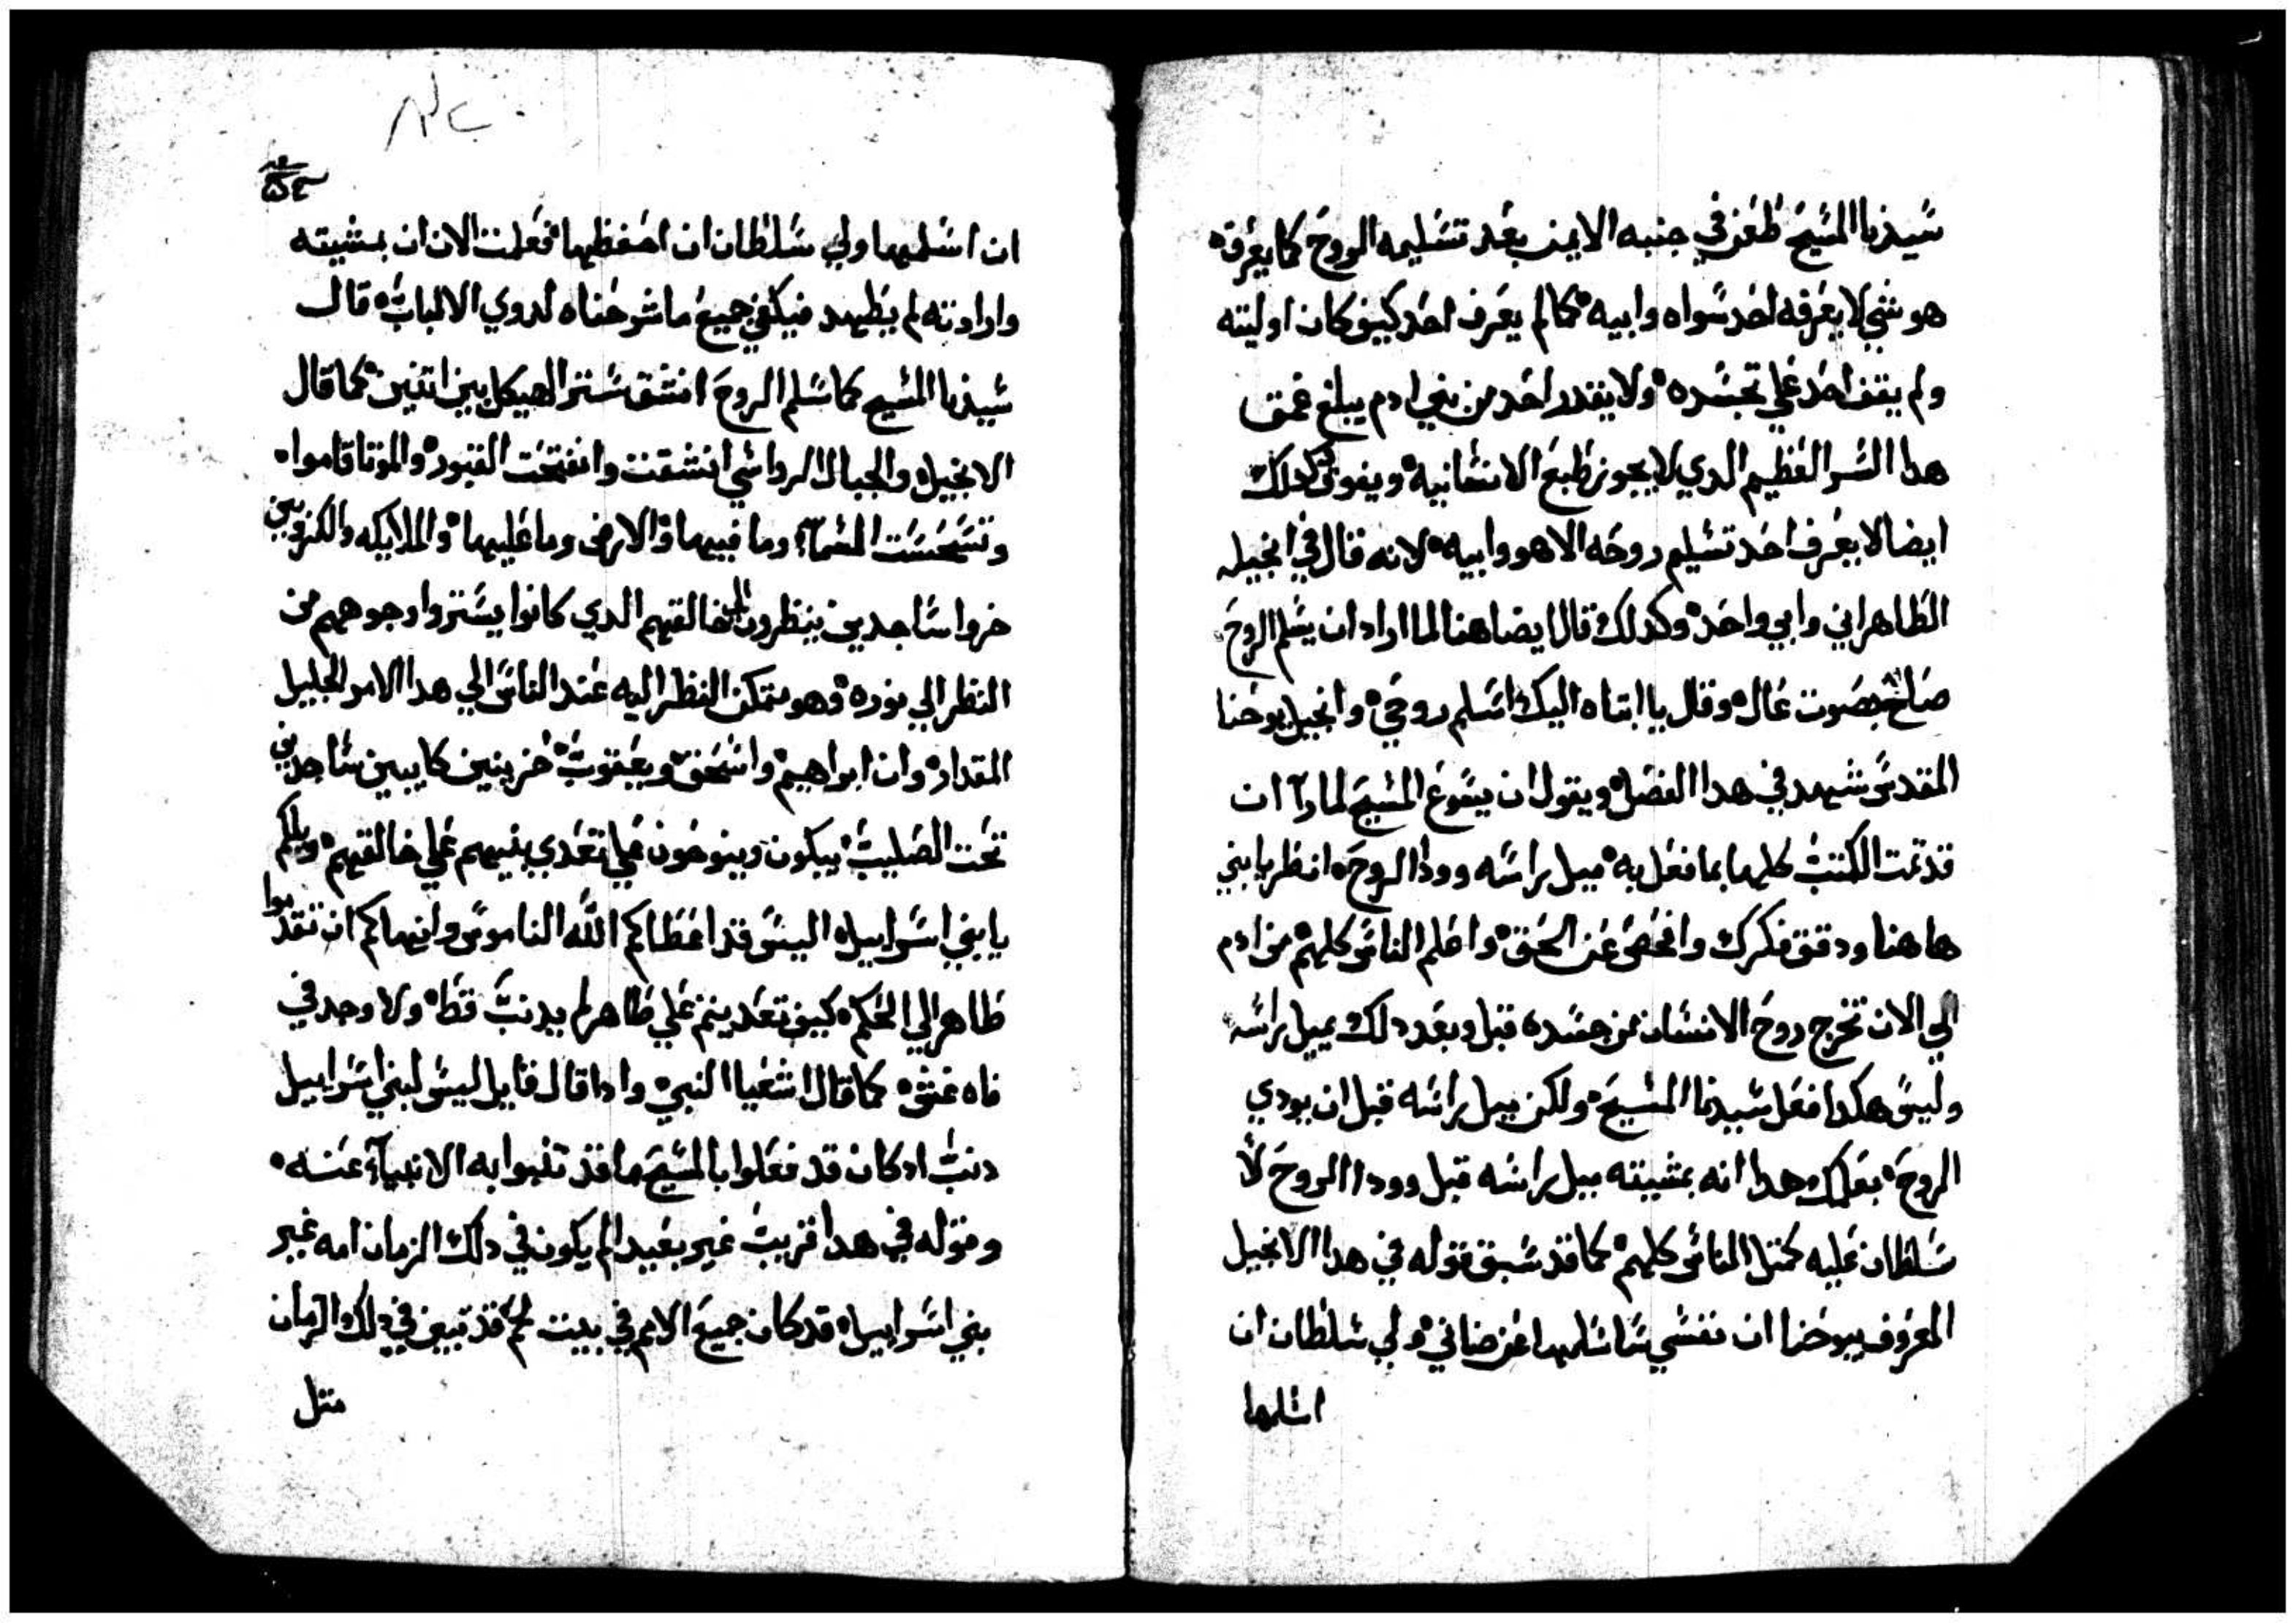 سيدنا المسيح طعن في جنبه الايمن بعد تسليمه الروح كما يعرفه
هو شي لا يعرفه احد سواه وابيه كما لم يعرف احد كيف كان اوليته
ولم يقف احد علي تجسده ولا يقدر احد من بني ادم يبلغ عمق
هدا السر العظيم الدي لا يجوز طبع الانسانيه ويفوق كدلك
ايضا لا يعرف احد تسليم روحه الا هو وابيه لانه قال في انجيله
الطاهر اني وابي واحد وكدلك قال ايضا هنا لما اراد ان يسلم الروح
صاح بصوت عال وقال يا ابتاه اليك اسلم روحي وانجيل يوحنا
المقدس شهد في هدا الفصل ويقول ان يسوع المسيح لما راا ان
قد تمت الكتب كلها بما فعل به ميل براسه وودا الروح انظر يا بني
هاهنا ودقق فكرك وافحص عن الحق واعلم الناس كلهم من ادم
الي الان تخرج روح الانسان من جسده قبل وبعد دلك يميل براسه
وليس هكدا فعل سيدنا المسيح ولكن ميل براسه قبل ان يودي
الروح هدا انه بمشيته ميل براسه قبل وودا الروح لا
سلطان عليه كمتل الناس كلهم كما قد سبق قوله في هدا الانجيل
المعروف بيوحنا ان نفسي انا اسلمها عن ضاني ولي سلطان ان
اسلمها
ان اسلمها ولي سلطان ان احفظها فعلمت الان ان بمشيته
وارادته لم يظهد فيكفي جميع ما شرحناه لدوي الالباب قال
سيدنا المسيح كما سلم الروح انشق ستر الهيكل بين اتنين كما قال
الانجيل والجبال الرواسي انشقت وانفتحت القبور والموتا قاموا
السماء وما فيها والارض وما عليها والملايكه والكروبين
خروا ساجدين ينظرون الي خالقهم الدي كانوا يستروا وجوههم من
النظر الي نوره وهو متمكن النظر اليه عند الناس الي هدا الامر الجليل
المقدار وان ابراهيم واسحق ويعقوب حزينين كايبين ساجدين
تحت الصليب يبكون وينوحون علي تعدي بنيهم علي خالقهم ويلكم
يا بني اسراييل اليس قد اعطاكم الله الناموس وانهاكم ان تقدموا
طاهر الي الحكم كيف تعديتم علي طاهر لم يدنب قط ولا وجد في
فاه غش كما قال اشعيا النبي وادا قال قايل ليس لبني اسراييل
دنب ادكان قد فعلوا بالمسيح ما قد تنبوا به الانبياء عنه
وقوله في هدا قريب غير بعيد الم يكون في دلك الزمان امه غير
بني اسراييل قد كان جميع الامم في بيت لحم قد تبين في دلك الزمان
متل